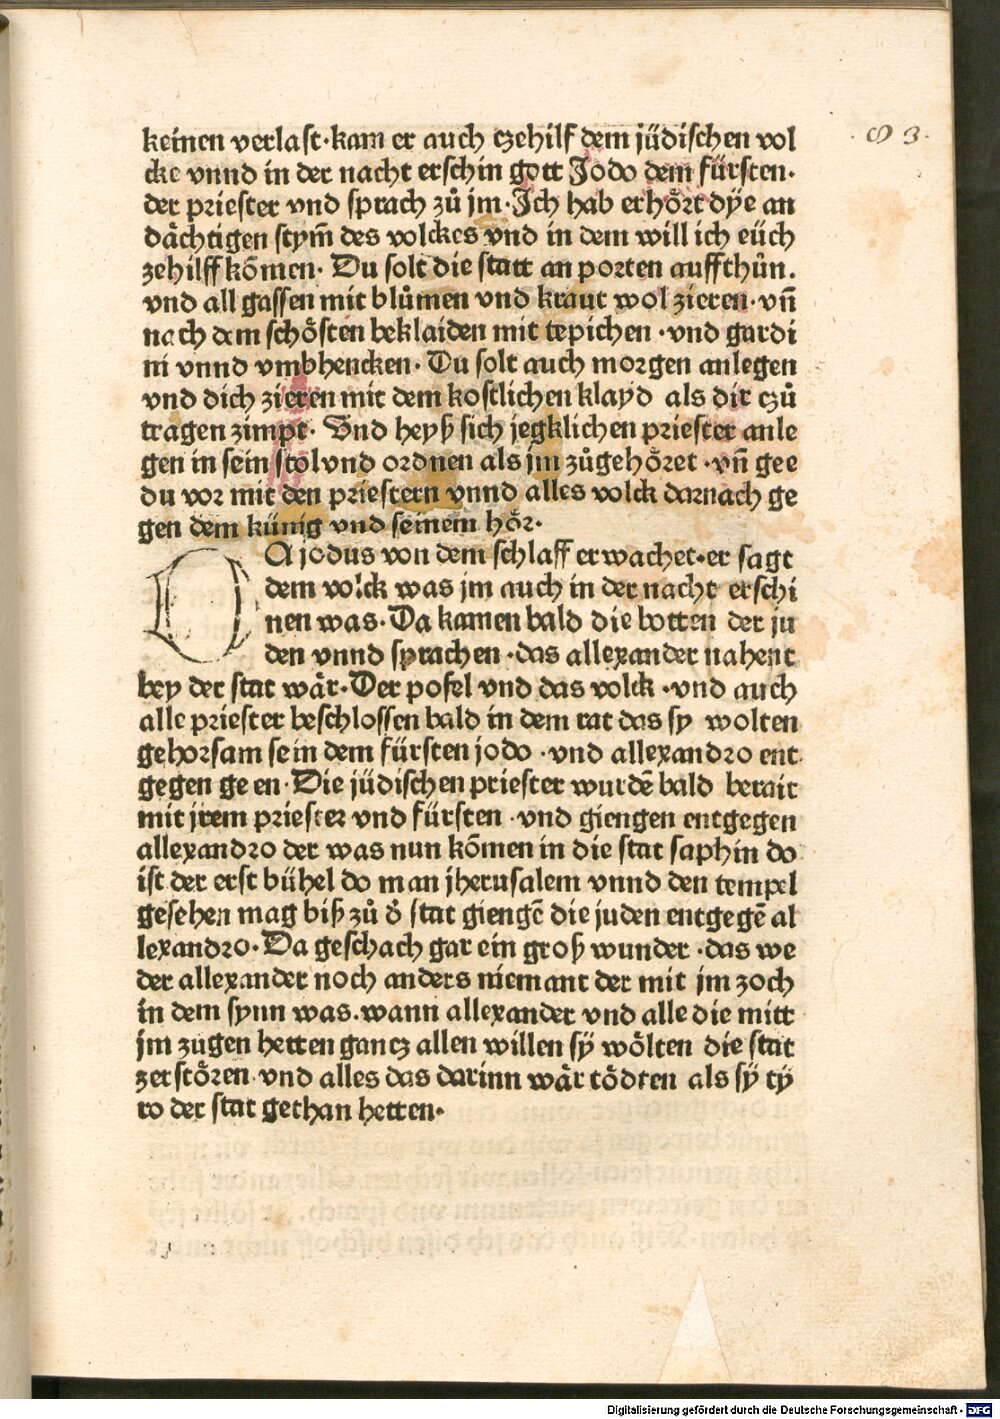 keinen verlast·kam er auch czehilf dem jüdischen vol
cke vnnd in der nacht erschin gott Jodo dem fürsten·
der priester vnd sprach zů jm·Ich hab erhört dÿe an
dächtigen stym̄ des volckes vnd in dem will ich eüch
zehilff kōmen· Du solt die statt an porten auffthůn.
vnd all gassen mit blůmen vnd kraut wol zieren·vn̄
nach dem schősten beklaiden mit tepichen ·vnd gardi
ni vnnd vmbhencken· Du solt auch morgen anlegen
vnd dich zieren mit dem kostlichen klayd als dir czů
tragen zimpt· Vnd heyß sich jegklichen priester anle
gen in sein stol vnd ordnen als jm zůgehöret ·vn̄ gee
du vor mit den priestern vnnd alles volck darnach ge
gen dem künig vnd seinem hör·
DA jodus von dem schlaff erwachet·er sagt
dem volck was jm auch in der nacht erschi
nen was·Da kamen bald die botten der ju
den vnnd sprachen ·das allexander nahent
bey der stat wär·Der pofel vnd das volck ·vnd auch
alle priester beschlossen bald in dem rat das sy wolten
gehorsam sein dem fürsten jodo ·vnd allexandro ent
gegen geen·Die jüdischen priester wurdē bald berait
mit jrem priester vnd fürsten ·vnd giengen entgegen
allexandro der was nun kōmen in die stat saphin do
ist der erst bühel do man jherusalem vnnd den tempel
gesehen mag biß zů d̄ stat giengē die juden entgegē al
lexandro·Da geschach gar ein groß wunder ·das we
der allexander noch anders niemant der mit jm zoch
in dem synn was.wann allexander vnd alle die mitt
jm zugen hetten gancz allen willen sÿ wölten die stat
zerstören·vnd alles das darinn wär tödten als sÿ tÿ
ro der stat gethan hetten·
Digitalisierung gefördert durch die Deutsche Forschungsgemeinschaft - DFG